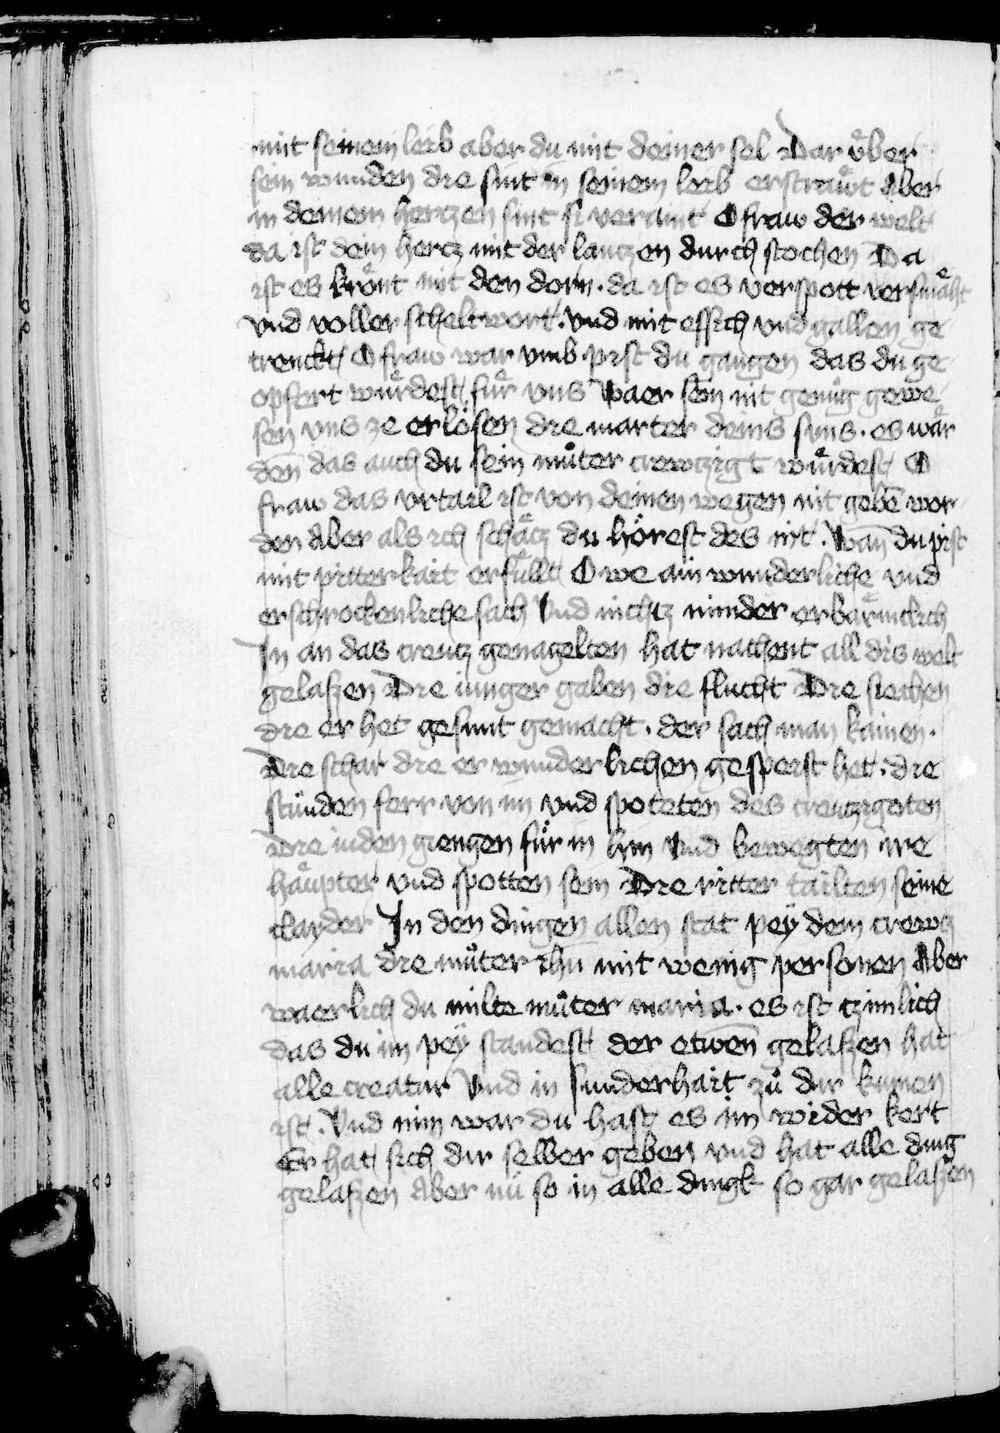 mit seinem leib aber du mit deiner sel Dar vͤber
sein wunden die sint in seinem leib erstraͤwt Aber
in deinem hertzen sint si veraint O fraw der welt
da ist dein hertz mit der lantzen durch stochen Da
ist es kroͤnt mit den dorn. da ist es verspott versmaͤht
vnd voller scheltwort. Vnd mit essich vnd gallen ge
trenckt O fraw war vmb pist du gangen das du ge
opfert wuͤrdest fuͤr vns Waer sein nit genuͦg gewe
sen vns ze erloͤsen die marter deins suns. es waͤr
den das auch du sein muͦter crewtzigt wuͤrdest O
fraw das vrtail ist von deinen wegen nit gebē wor
den Aber als ich schaͤtz du hoͤrest des nit. Wan̄ du pist
mit pitterkait erfuͤllt O we ain wunderliche vnd
erschrockenliche sach Vnd nichtz minder erbaͤrmcklich
In an das creutz genagelten hat nachent all dis welt
gelaszen Die iunger gaben die flucht Die siechen
die er het gesunt gemacht. der sach man kainen.
Die schar die er wunderlichen gespeist het. die
stuͤnden ferr von im vnd spoteten des creutzigoten
Die iuden giengen fuͤr in hin Vnd bewegten ire
haͤupter vnd spotten sein Die ritter tailten seine
clayder In den dingen allen stat peÿ dem crewtz
maria die muͦter ihū mit wenig personen Aber
waerlich du milte muͦter maria. es ist tzimlich
das du im peÿ standest der etwen̄ gelaszen hat
alle creatur Vnd in sunderhait zuͦ dir kumen
ist. Vnd nim war du hast es im wider kert
Er hat sich dir selber geben vnd hat alle ding
gelaszen Aber nuͤ so in alle dingk so gar gelaszen